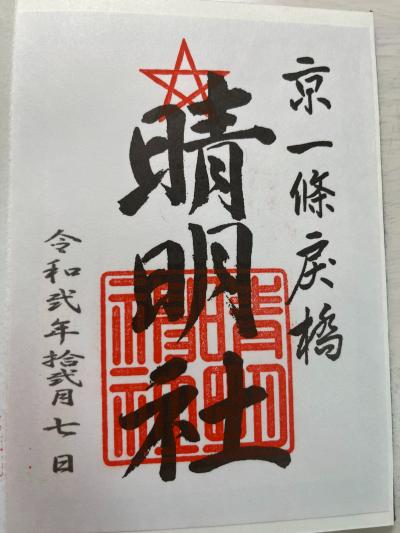 京一條戻橋
晴明社
晴明神社
令和弐年拾弐月七日